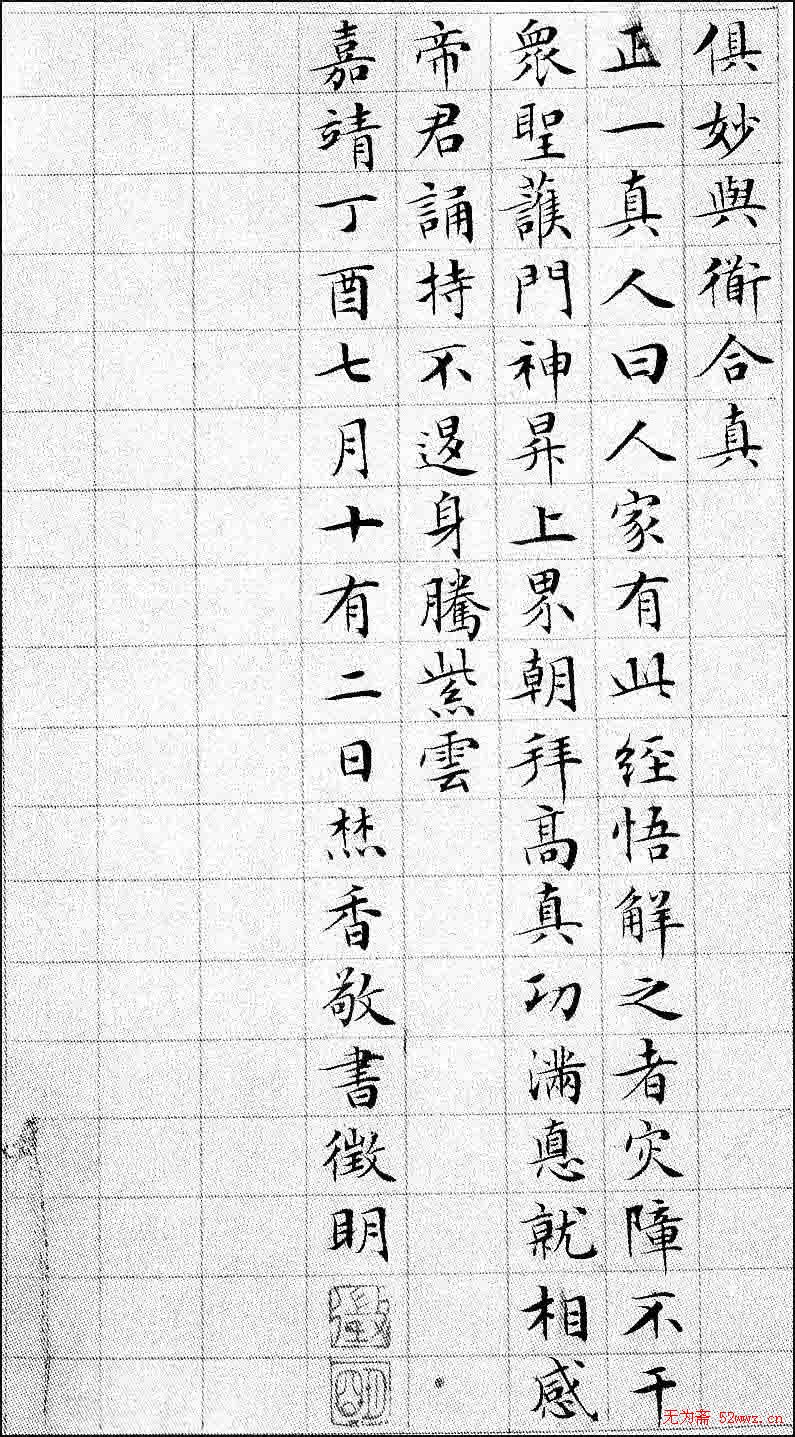 俱妙與衜合真
正一真人曰人家有此經悟解之者灾障不干
衆聖護門神昇上界朝拜高真功滿悳就相感
帝君誦持不退身騰紫雲
嘉靖丁酉七月十有二日焚香敬書徵明
徵
明
无为斋 52wwz.cn